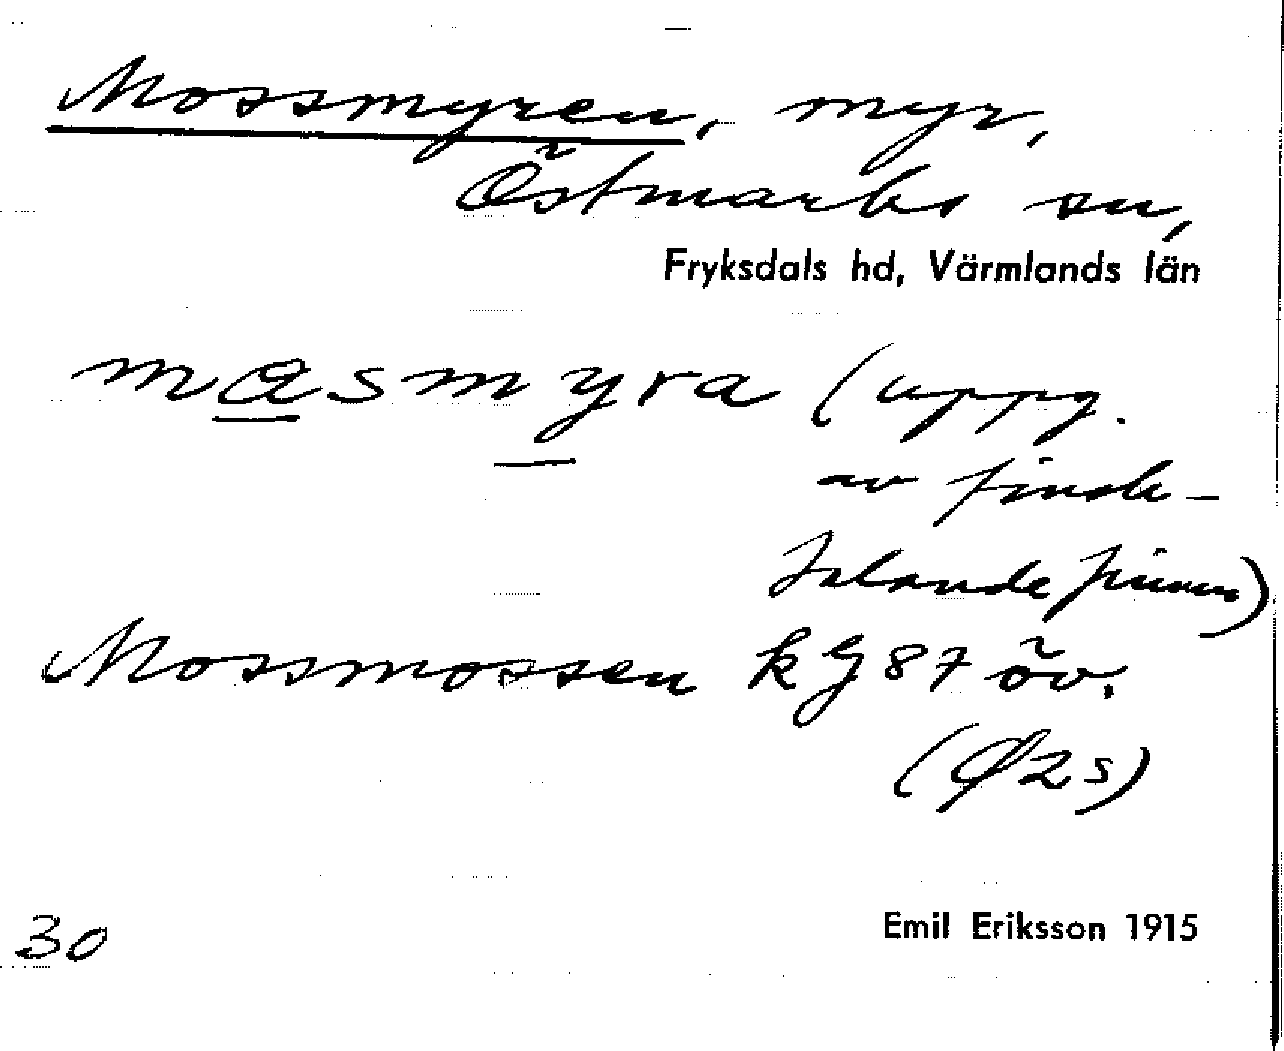 Mossmyren, myr,
Östmarks sn,
Fryksdals hd, Värmlands län
masmyra (uppg.
av finsk-
talande finnen)
Mossmossen kg 87 öv.
(Ø2s)
Emil Eriksson 1915
30